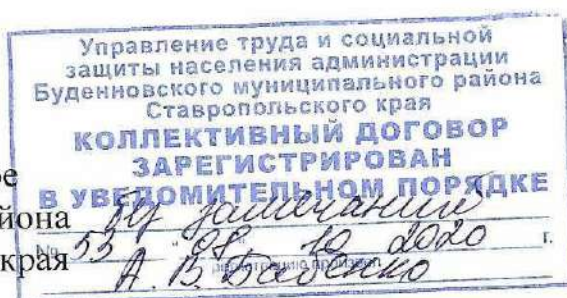 Управление труда и социальной
защиты населения администрации
Буденновского муниципального района
Ставропольского края
КОЛЛЕКТИВНЫЙ ДОГОВОР
ЗАРЕГИСТРИРОВАН
В УВЕДОМИТЕЛЬНОМ ПОРЯДКЕ
ое
йона без замечаний
края № 53 " 08 " 10 2020 г.
регистрацию произвел
А. В. Бабенко